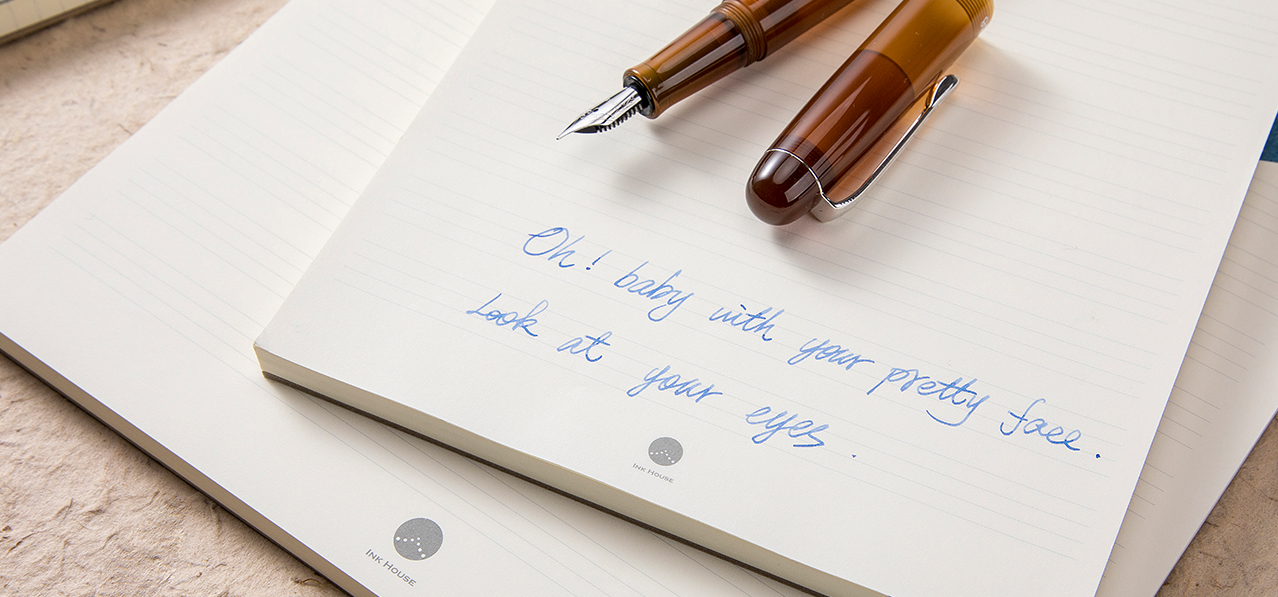 Oh! baby with your pretty face.
Look at your eyes.
INK HOUSE
INK HOUSE